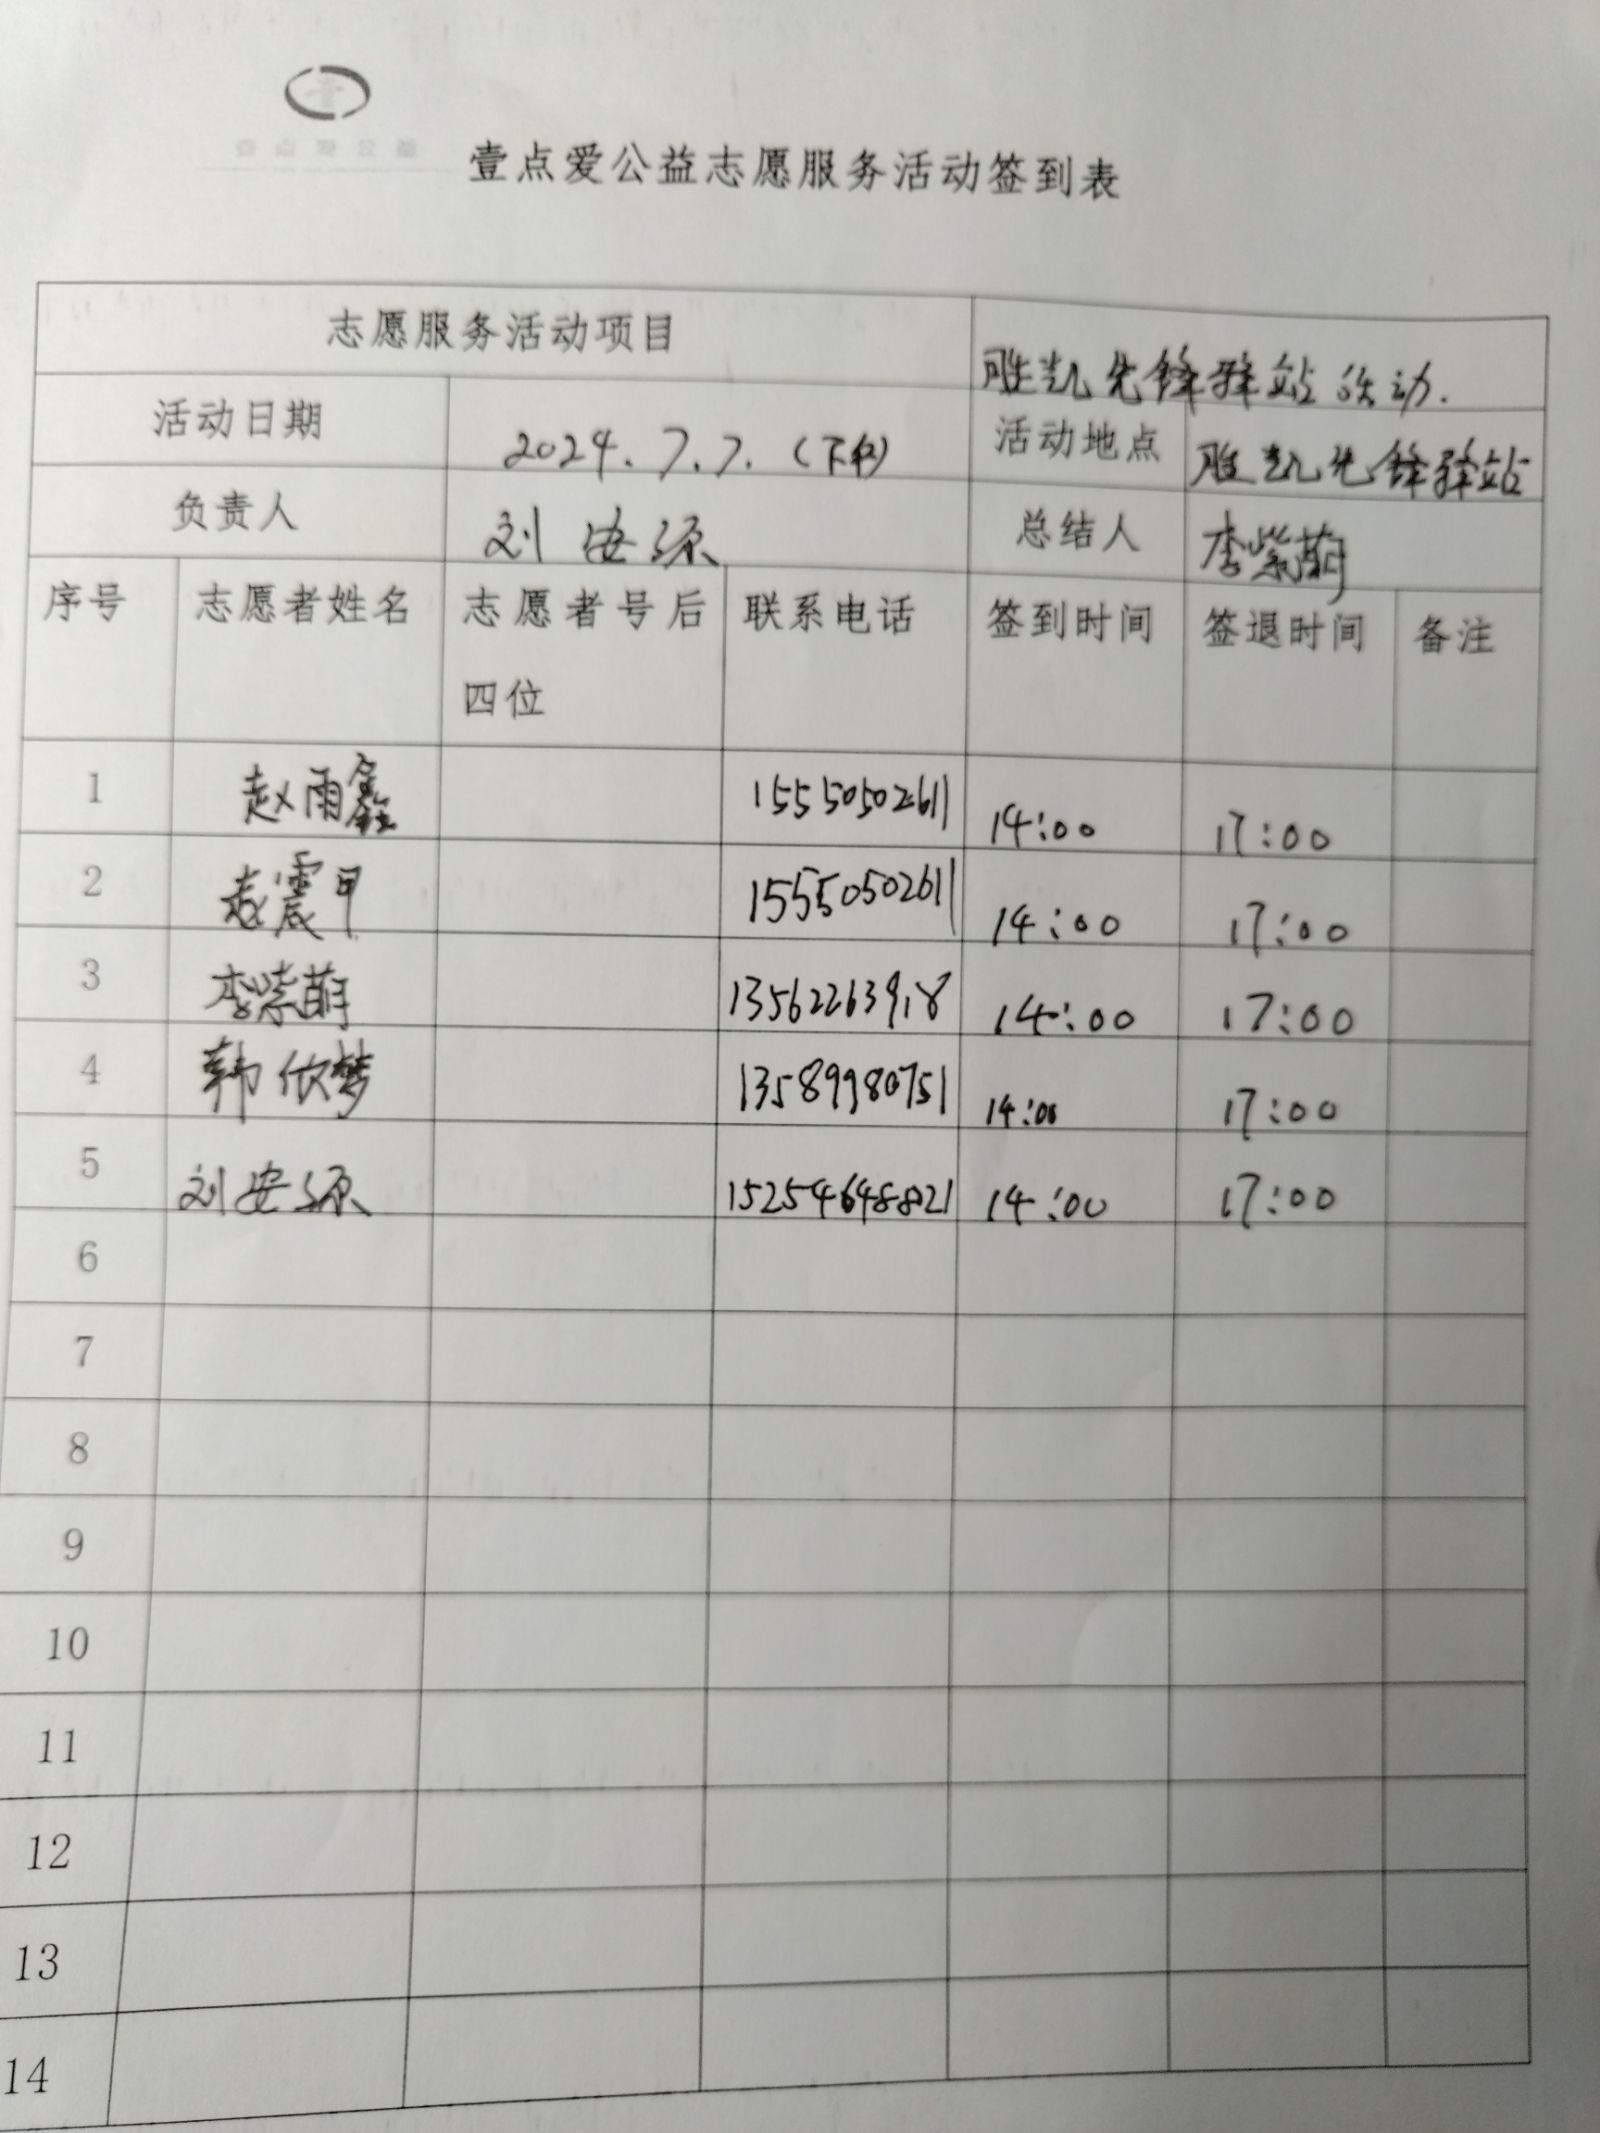 壹点爱公益志愿服务活动签到表
志愿服务活动项目 胜凯先锋驿站活动.
活动日期 2024.7.7.(下午) 活动地点 胜凯先锋驿站
负责人 刘安源 总结人 李紫萌
序号 志愿者姓名 志愿者号后四位 联系电话 签到时间 签退时间 备注
1 赵雨鑫 15550502611 14:00 17:00
2 赵震甲 15550502611 14:00 17:00
3 李紫萌 13562263918 14:00 17:00
4 韩欣梦 13589980751 14:00 17:00
5 刘安源 15254648821 14:00 17:00
6
7
8
9
10
11
12
13
14